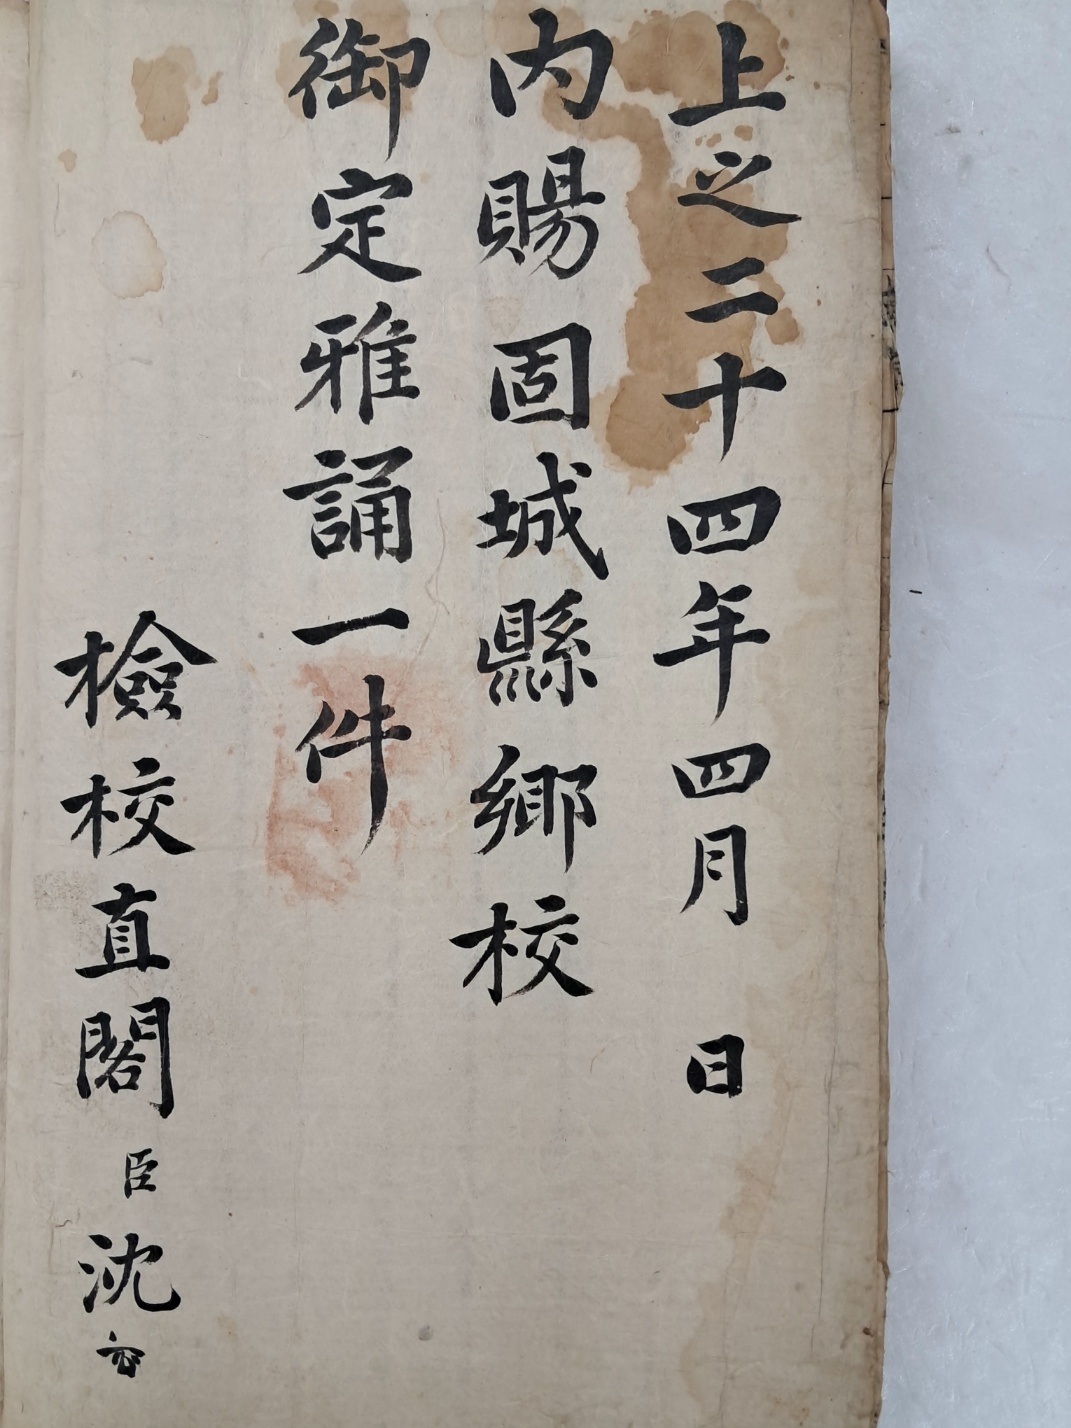 上之二十四年四月 日
內賜固城縣鄕校
御定雅誦一件
檢校直閣臣沈